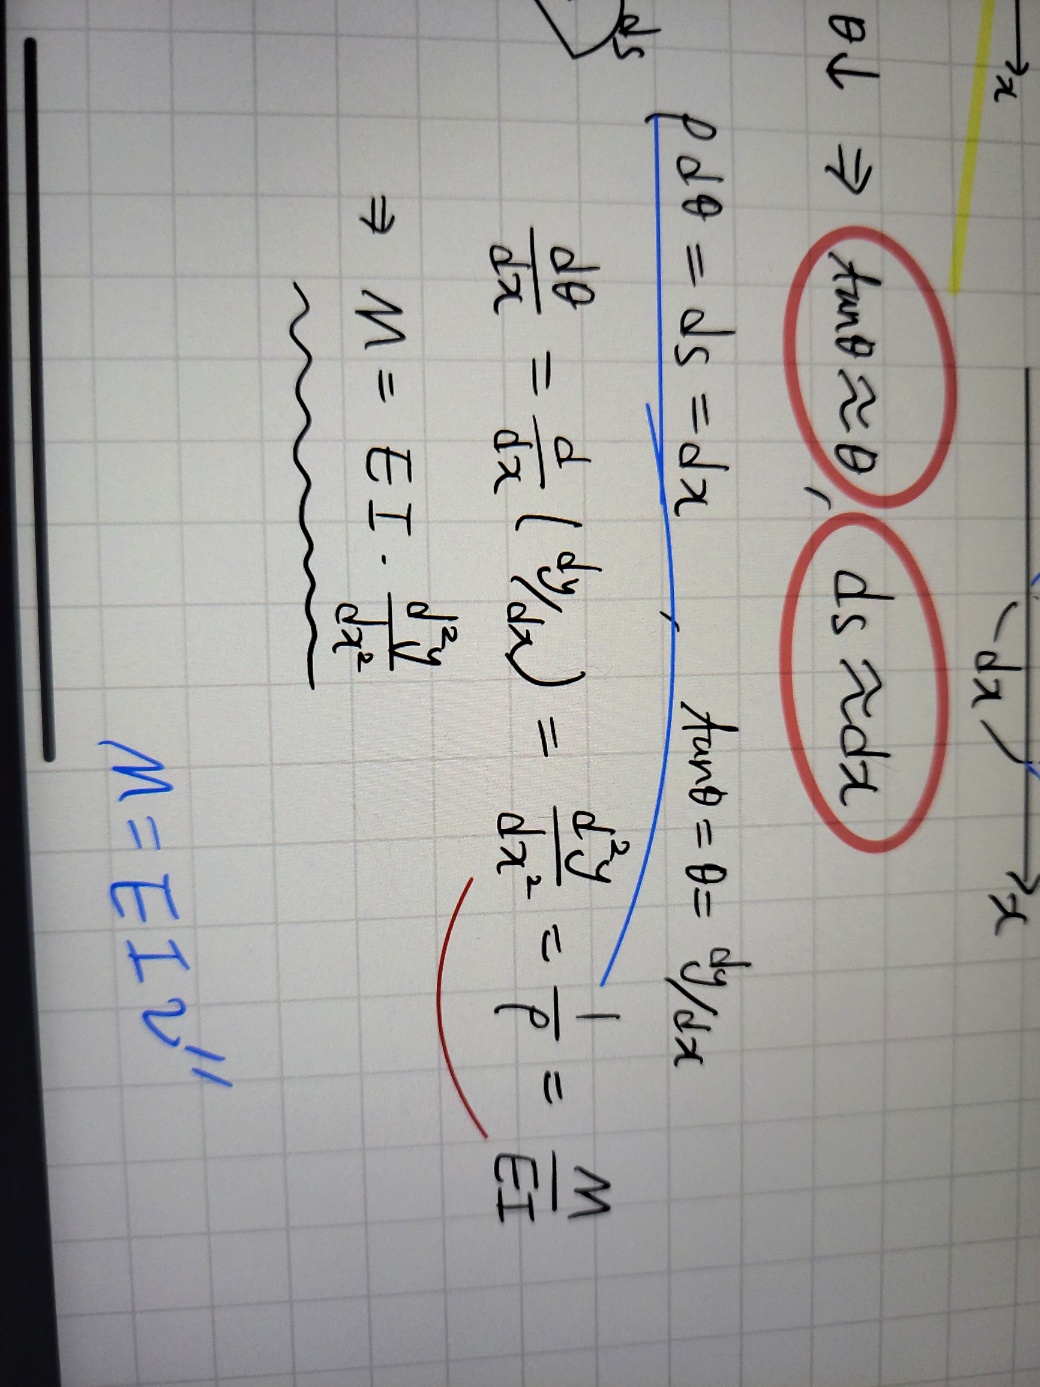 x
dx
x
θ↓ ⇒ tanθ≈θ, ds≈dx
ds
ρdθ = ds = dx, tanθ = θ = dy/dx
dθ/dx = d/dx (dy/dx) = d²y/dx² = 1/ρ = M/EI
⇒ M = EI · d²y/dx²
M = EIv''